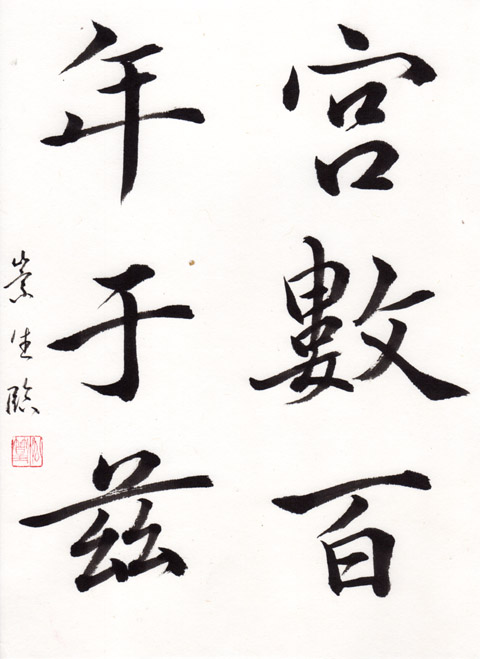 宮數百
年于茲
崇生臨